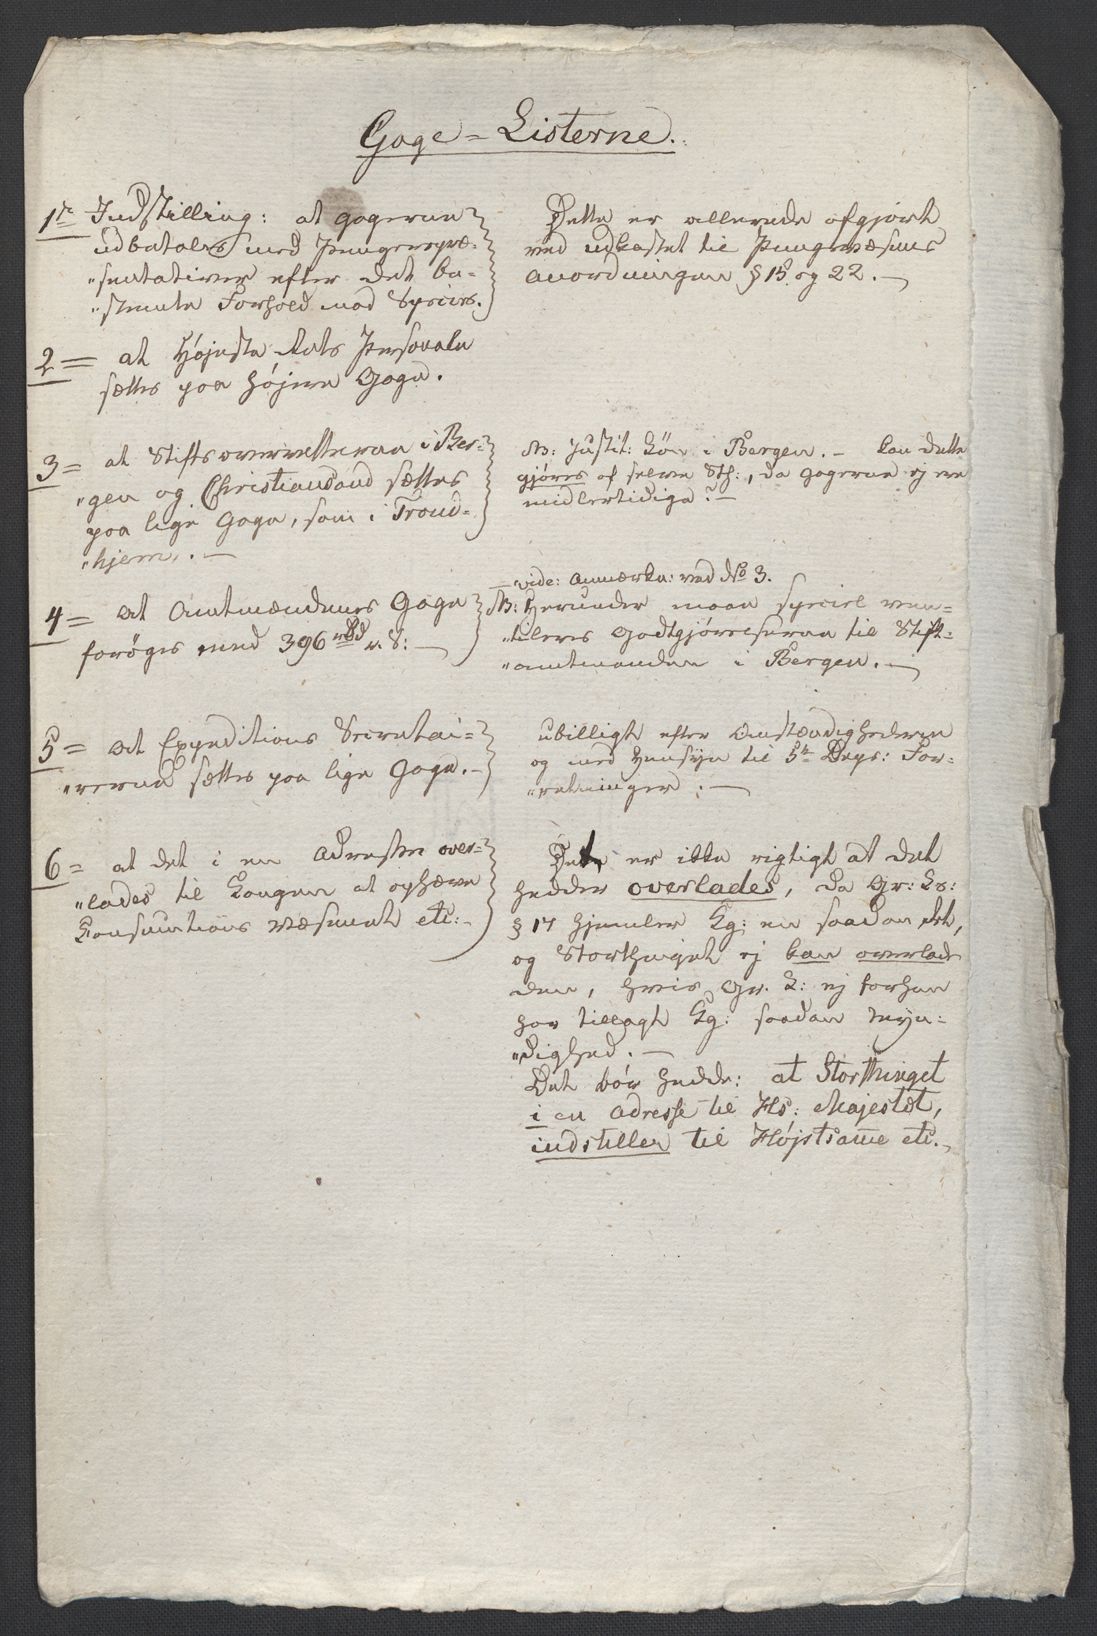 Gage-Listerne.
1te Indstilling: at gagerne
udbetales med Pengerepræ-
"sentativer efter det be-
"stemte Forhold mod Species.
Dette er allerede afgjort
ved udkastet til Pengevæsens
Anordningen § 15 og 22. —
2= at Højeste Rets Personale
sættes paa højere Gage.
3= at Stiftsoverretterne i Ber-
"gen og Christiansand sættes
paa lige Gage, som i Trond-
"hjem. —
NB: Justit: Løn i Bergen. — kan dette
gjøres af selve Sth:, da gagerne ej ere
midlertidige? —
4= at Amtmændenes Gage
forøges med 396 rbd r. S: —
— vide: Anmærkn: ved No 3.
NB: Herunder maae speciel ven-
"tileres Godtgjørelserne til Stift-
"amtmanden i Bergen. —
5= at Expeditions Secretai-
"rerne sættes paa lige Gage. —
ubilligt efter Omstændighederne
og med Hensyn til 5te Deps: For-
"retninger. —
6= at det i en Adresse over-
"lades til Kongen at ophæve
Consumtions Væsenet etc: —
Det er ikke rigtigt at det
hedder overlades, da Gr: Lo:
§ 17 hjemler Kg: en saadan Ret,
og Storthinget ej kan overlade
den, hvis Gr. L: ej forhen
har tillagt Kg: saadan Myn-
"dighed. —
Det bör hedde: at Storthinget
i en Adresse til Hs: Majestæt,
indstiller til Højstsamme etc. —